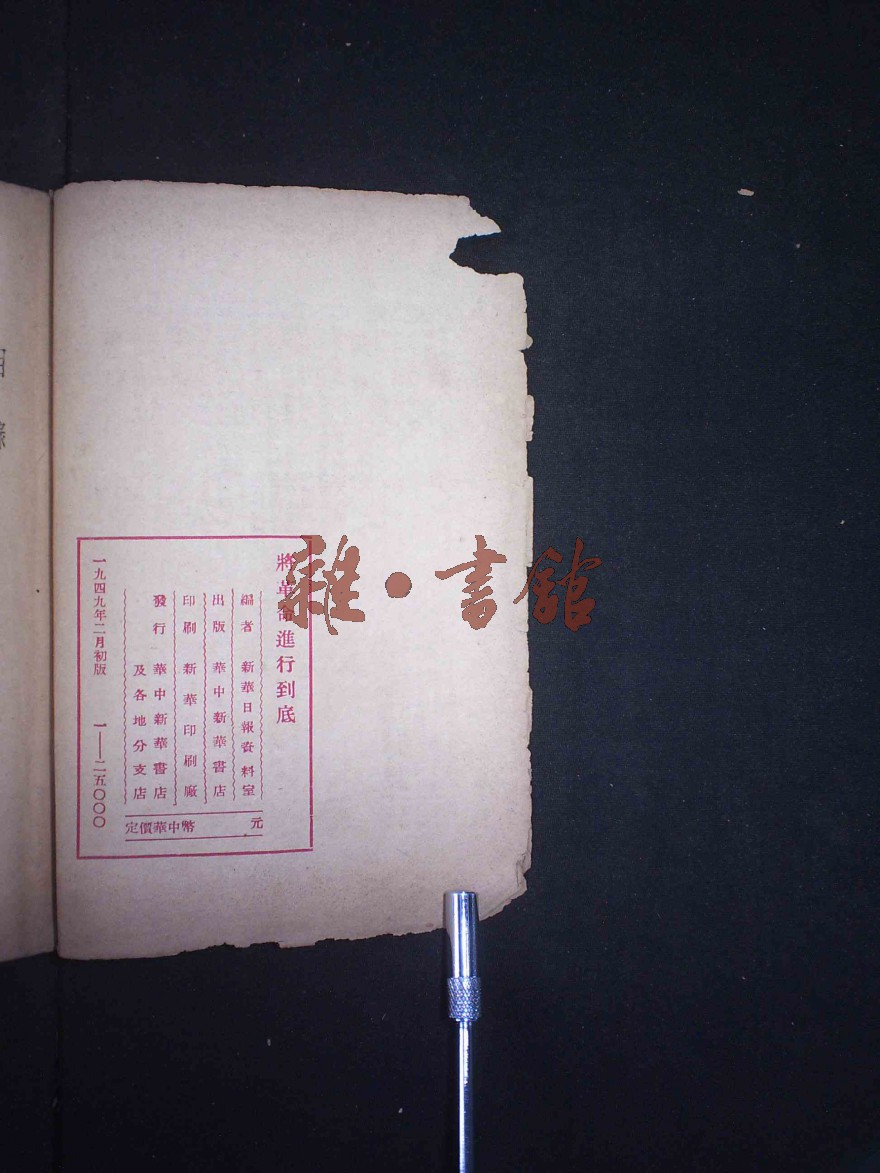 將革命進行到底
編者 新華日報資料室
出版 華中新華書店
印刷 新華印刷廠
發行 華中新華書店
及各地分支店
定價華中幣 元
一九四九年二月初版 一——二五〇〇〇
雜·書館